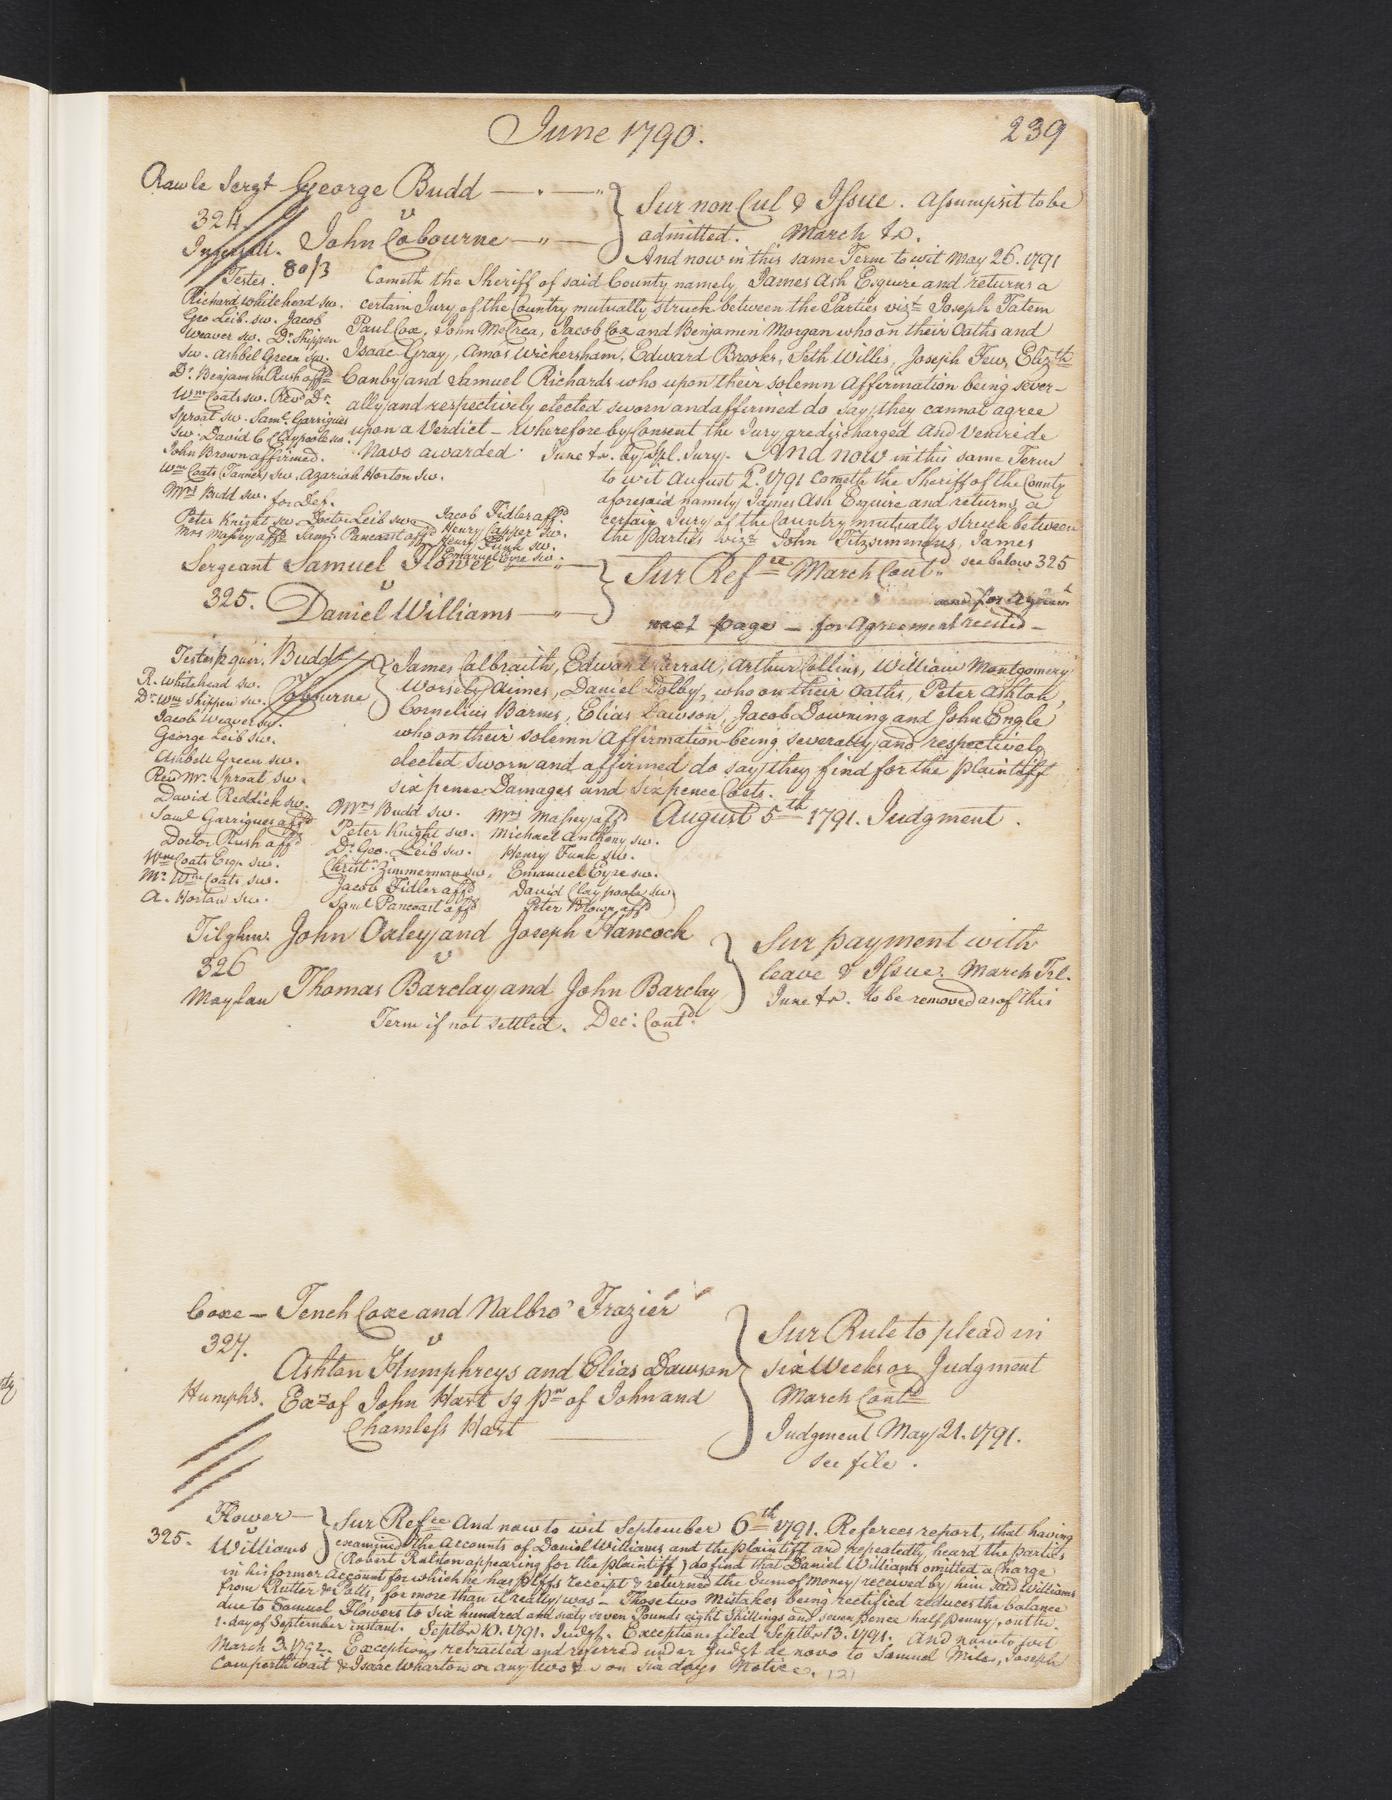 June 1790.
239
Rawle Sergt George Budd
324 v
Ingersoll. John Cobourne
Sur non Cul & Issue. Assumpsit to be
admitted. March &c.
And now in this same Term to wit May 26. 1791
80/3 Cometh the Sheriff of said County namely James Ash Esquire and returns a
certain Jury of the Country mutually struck between the Parties vizt Joseph Tatem
Paul Cox, John McCrea, Jacob Cox and Benjamin Morgan who on their Oaths and
Isaac Gray, Amos Wickersham, Edward Brooks, Seth Willis, Joseph Few, Elizth
Canby and Samuel Richards who upon their solemn Affirmation being sever-
ally and respectively elected sworn and affirmed do say they cannot agree
upon a Verdict - Wherefore by Consent the Jury are discharged and Venire de
Novo awarded June &c. by Spl. Jury. And now in this same Term
to wit August 2d. 1791 cometh the Sheriff of the County
aforesaid namely James Ash Esquire and returns a
certain Jury of the Country mutually struck between
the Parties vizt John Fitzsimmons, James
see below 325
Testes.
Richard Whitehead sw.
Geo Leib. sw. Jacob
Weaver sw. Dr. Shippen
sw. Ashbel Green sw.
Dr. Benjamin Rush affd
Wm Coats sw. Revd Dr.
Sproat sw. Saml. Garrigues
sw. David C. Claypoole sw.
John Brown affirmed.
Wm Coats (Tanner) sw. Azariah Horton sw.
Mrs Budd sw. for Def.
Peter Knight sw. Doctor Leib sw. Jacob Fidler affd
Mrs Massey affd Saml. Pancoast affd Henry Capper sw.
Henry Funk sw.
Emanuel Eyre sw.
Sergeant Samuel Flower
v
325. Daniel Williams
Sur Refce March Contd
and for Agreemt
next page - for Agreement recited -
Testes p quer. Budd
v
Cobourne
James Calbraith, Edward Carrall, Arthur Collins, William Montgomery
Worsely Aimes, Daniel Dolby, who on their Oaths, Peter Ashton,
Cornelius Barns, Elias Dawson, Jacob Downing and John Engle
who on their solemn Affirmation being severally and respectively
elected sworn and affirmed do say they find for the plaintiff
six pence Damages and six pence Costs.
August 5th 1791. Judgment.
R. Whitehead sw.
Dr. Wm Shippen sw.
Jacob Weaver sw.
George Leib sw.
Ashbell Green sw.
Revd Mr. Sproat sw.
David Reddick sw.
Saml Garrigues affd
Doctor Rush affd
Wm Coats Esqr. sw.
Mr. Wm Coats, sw.
A. Horton sw.
Mrs Budd sw.
Peter Knight sw.
Dr. Geo. Leib sw.
Christn. Zimmerman sw.
Jacob Fidler affd
Saml Pancoast affd
Mrs Massey affd
Michael Anthony sw.
Henry Funk sw.
Emanuel Eyre sw.
David Claypoole sw
Peter Brown affd
Tilghm. John Oxley and Joseph Hancock
326 v
Moylan Thomas Barclay and John Barclay
Sur payment with
leave & Issue. March Trl.
June &c. to be removed as of this
Term if not settled. Dec: Contd.
Coxe - Tench Coxe and Nalbro' Frazier
327. v
Ashton Humphreys and Elias Dawson
Humphs. Exrs of John Hart Sg pr of John and
Chamless Hart
Sur Rule to plead in
six Weeks or Judgment
March Contd
Judgment May 21. 1791.
see file.
Flower
325. v
Williams
Sur Refce And now to wit September 6th 1791. Referees report, that having
examined the Accounts of Daniel Williams and the plaintiff and repeatedly heard the parties
(Robert Ralston appearing for the plaintiff) do find that Daniel Williams omitted a Charge
in his former Account for which he has plffs receipt & returned the Sum of Money received by him said Williams
from Rutler & Patts, for more than it really was - Those two Mistakes being rectified reduces the balance
due to Samuel Flowers to six hundred and sixty seven Pounds eight Shillings and seven pence half penny, on the
1. day of September instant. Septbr 10. 1791. Judgt. Exceptions filed Septbr 13. 1791. And now to wit
March 3. 1792. Exceptions retracted and referred under Judgt de novo to Samuel Miles, Joseph
Cowperthwait & Isaac Wharton or any two &c on six days Notice.
121